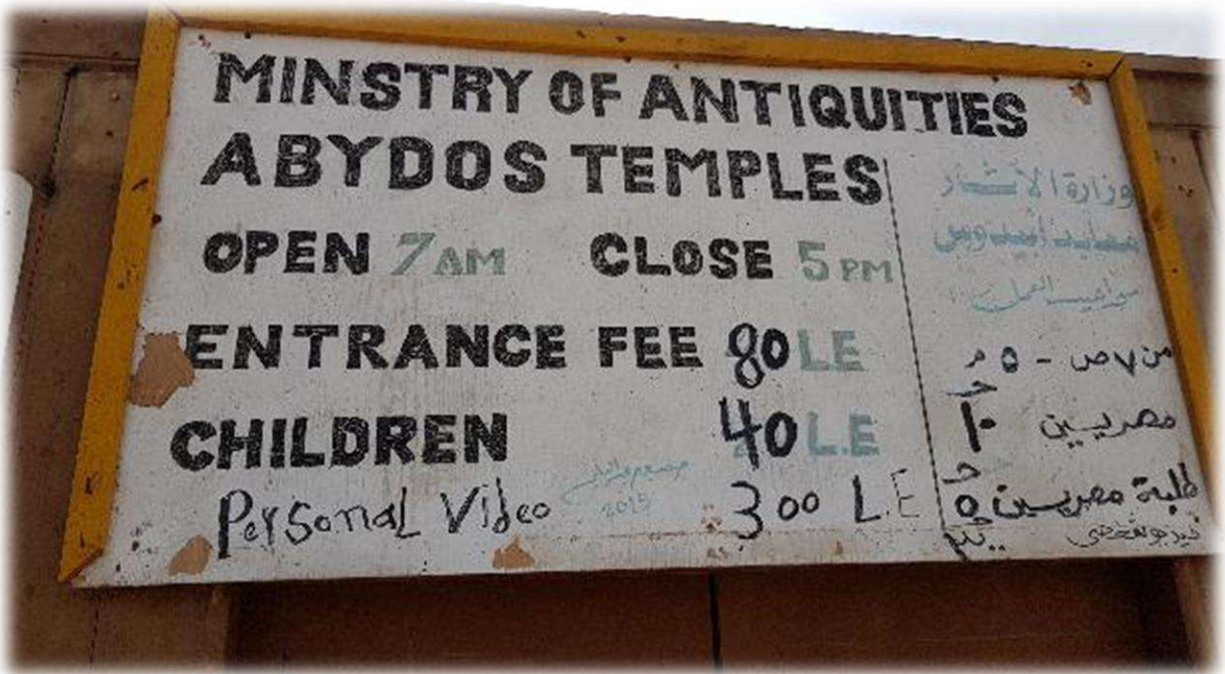 MINSTRY OF ANTIQUITIES
ABYDOS TEMPLES
OPEN 7AM CLOSE 5 PM
ENTRANCE FEE 80 LE
CHILDREN 40 L.E
Personal Video 300 L.E
2015
وزارة الآثار
معابد أبيدوس
مواعيد العمل
من ٧ ص - ٥ م
مصريين ١٠
طلبة مصريين ٥
فيديو شخصى